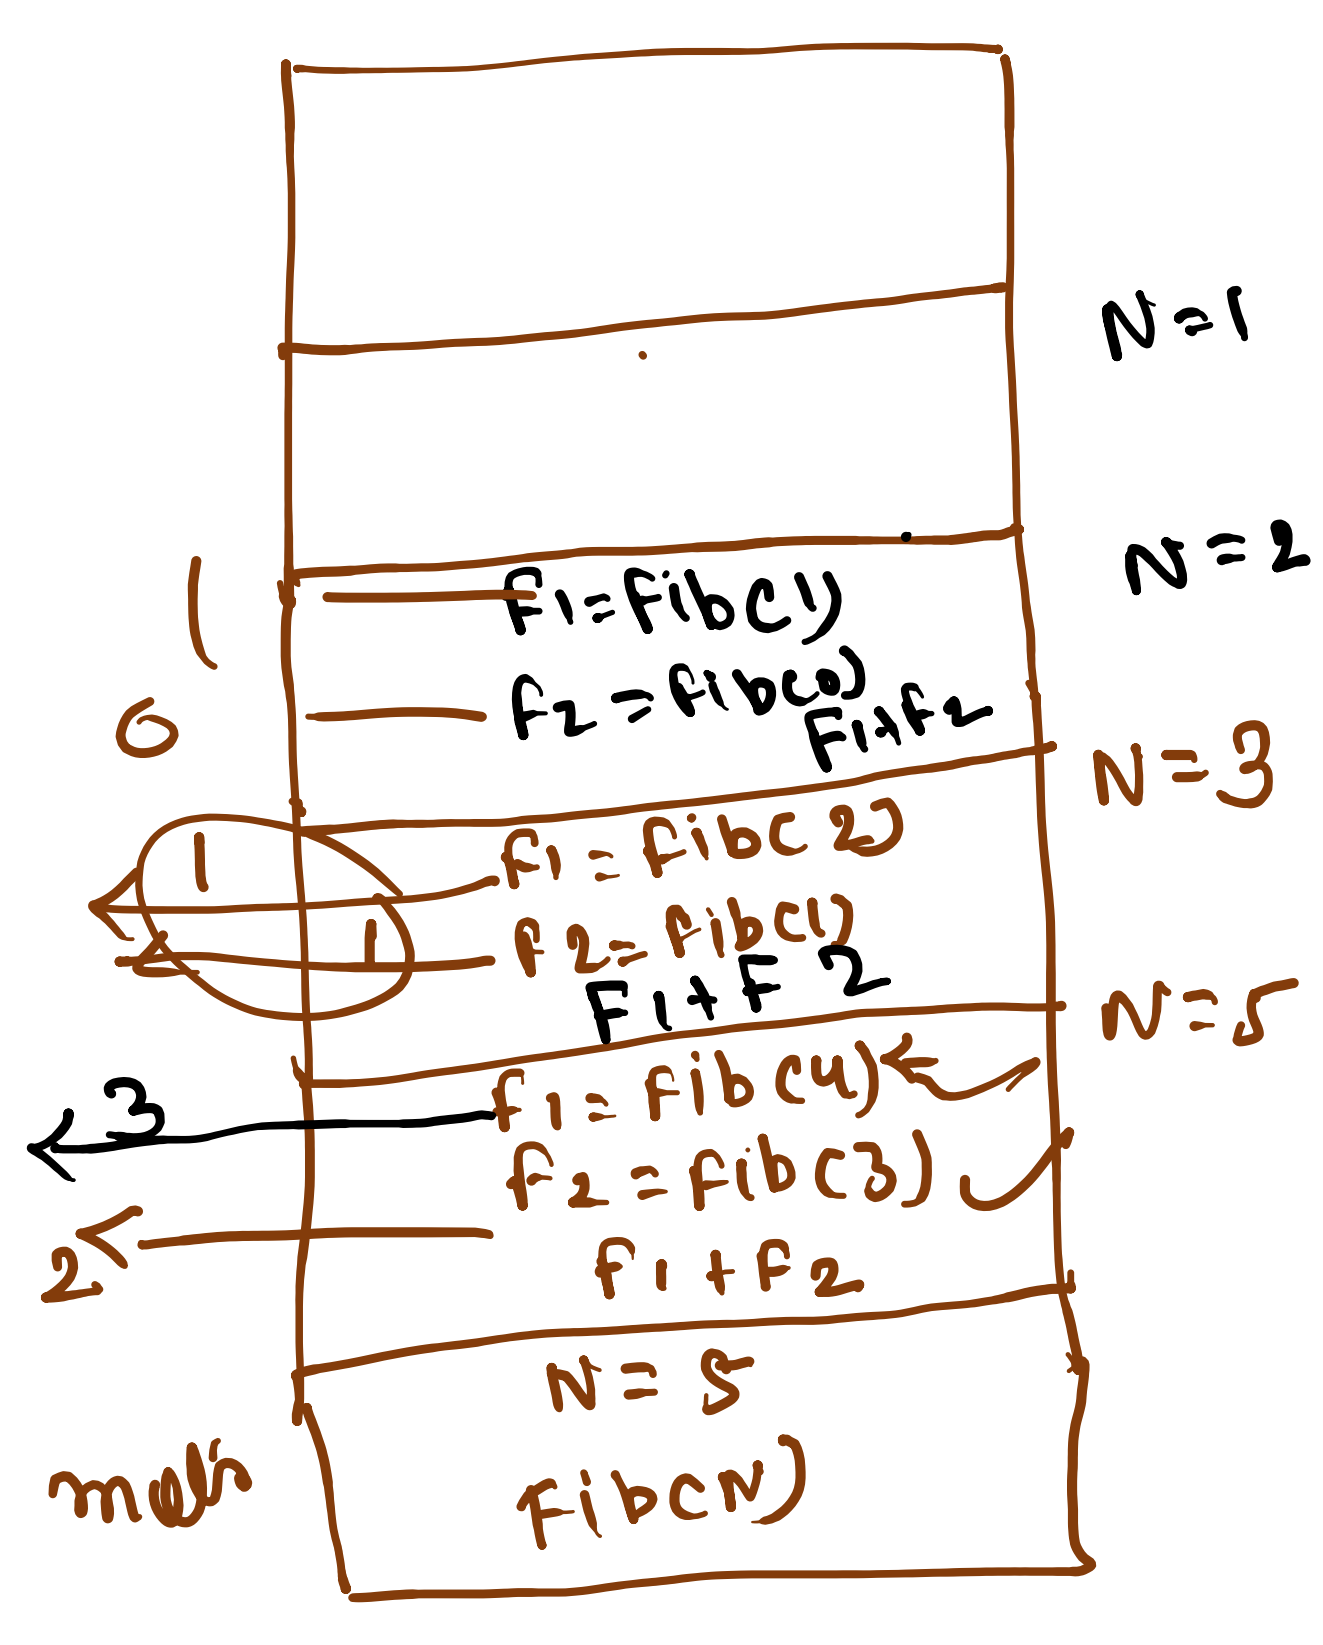 N=1
N=2
1
F1=Fib(1)
0
F2=fib(0)
F1+f2
N=3
1
f1=fib(2)
1
f2=fib(1)
F1+F2
N=5
3
f1=fib(4)
f2=fib(3)
2
f1+f2
N=5
Fib(N)